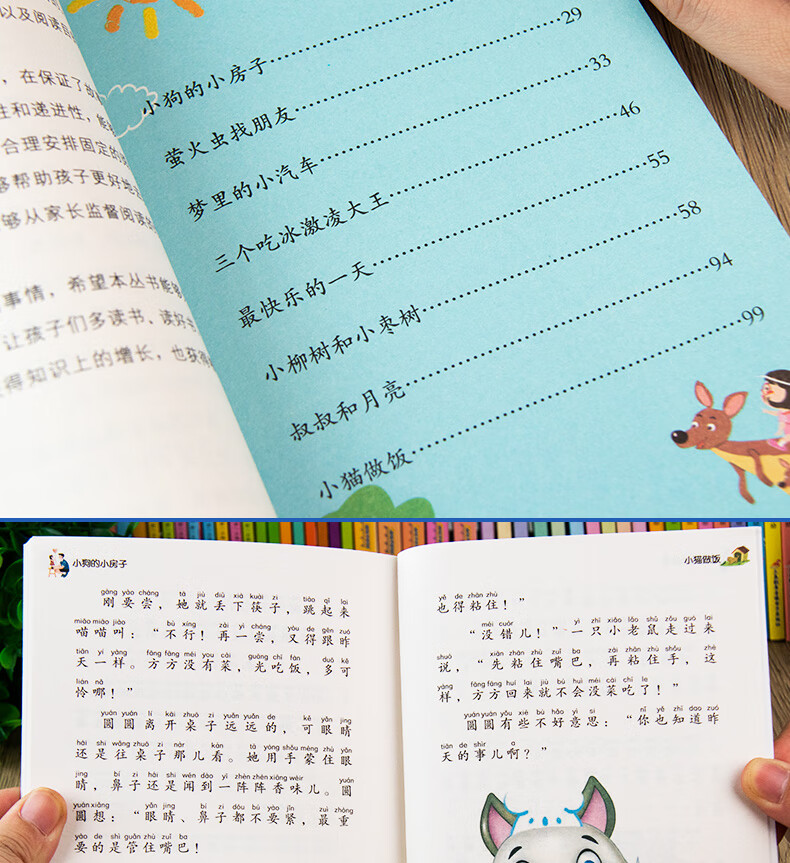 以及阅读
，在保证了故
性和递进性，能
合理安排固定的
够帮助孩子更好地
够从家长监督阅读的
事情，希望本丛书能够
让孩子们多读书、读好书
得知识上的增长，也获得
小狗的小房子
萤火虫找朋友 29
梦里的小汽车 33
三个吃冰激凌大王 46
最快乐的一天 55
小柳树和小枣树 58
叔叔和月亮 94
小猫做饭 99
小狗的小房子
gāng yào cháng tā jiù diū xià kuài zi tiào qǐ lai
刚要尝，她就丢下筷子，跳起来
miāo miāo jiào bù xíng zài yì cháng yòu de gēn zuó
喵喵叫：“不行！再一尝，又得跟昨
tiān yí yàng fāng fāng méi you cài guāng chī fàn duō kě
天一样。方方没有菜，光吃饭，多可
lián nǎ
怜哪！”
yuán yuán lí kāi zhuō zi yuǎn yuǎn de kě yǎn jing
圆圆离开桌子远远的，可眼睛
hái shi wǎng zhuō zi nàr kàn tā yòng shǒu méng zhù yǎn
还是往桌子那儿看。她用手蒙住眼
jing bí zi hái shi wén dào yí zhèn zhèn xiāng wèir yuán
睛，鼻子还是闻到一阵阵香味儿。圆
yuán xiǎng yǎn jing bí zi dōu bú yào jǐn zuì zhòng
圆想：“眼睛、鼻子都不要紧，最重
yào de shì guǎn zhù zuǐ ba
要的是管住嘴巴！
小猫做饭
yě de zhān zhù
也得粘住！”
méi cuòr yì zhī xiǎo lǎo shǔ zǒu guò lai
“没错儿！”一只小老鼠走过来
shuō xiān zhān zhù zuǐ ba zài zhān zhù shǒu zhè
说，“先粘住嘴巴，再粘住手，这
yàng fāng fāng huí lai jiù bú huì méi cài chī le
样，方方回来就不会没菜吃了！”
yuán yuán yǒu xiē bù hǎo yì si nǐ yě zhī dao zuó
圆圆有些不好意思：“你也知道昨
tiān de shìr a
天的事儿啊？”